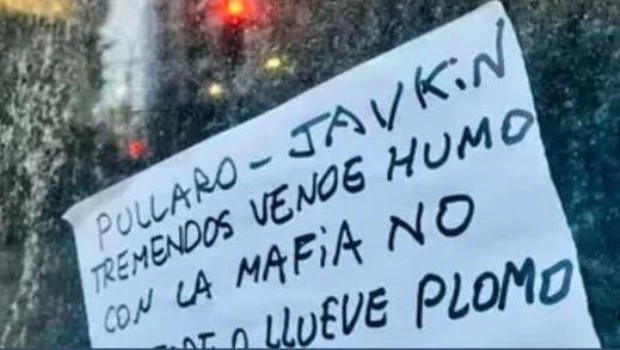 PULLARO - JAVKiN
TREMENDOS VENDE HUMO
CON LA MAFiA NO
O LLUEVE PLOMO